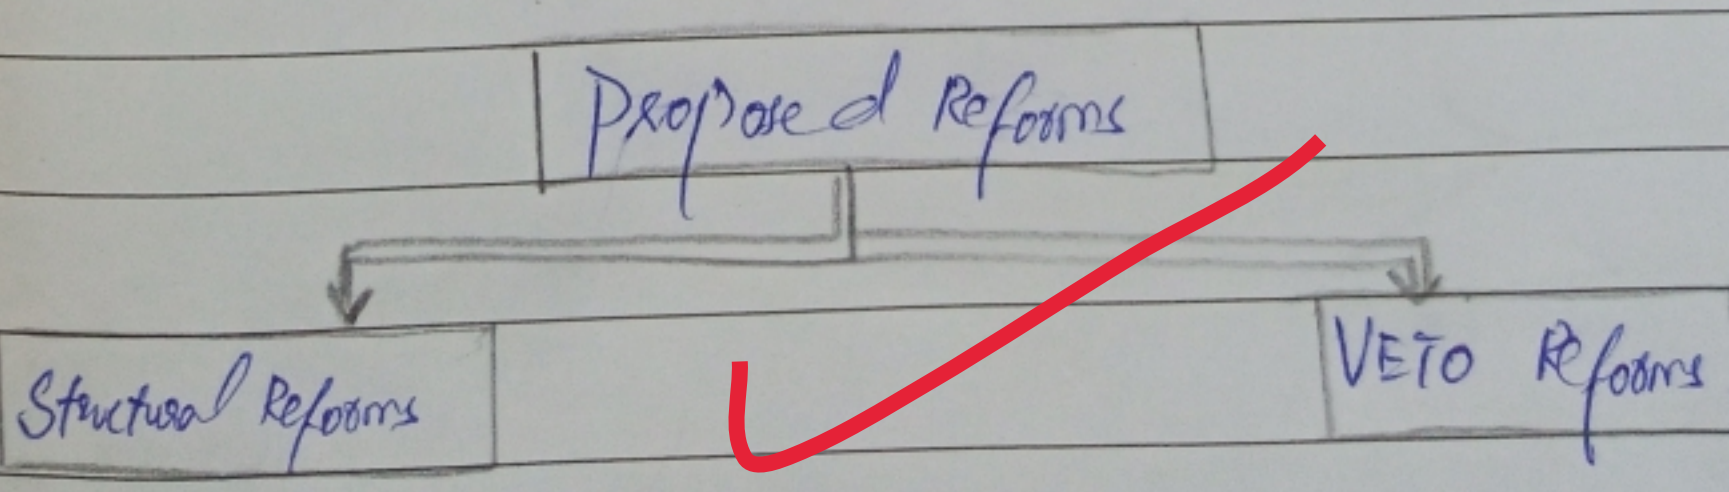 Proposed Reforms
Structural Reforms
VETO Reforms